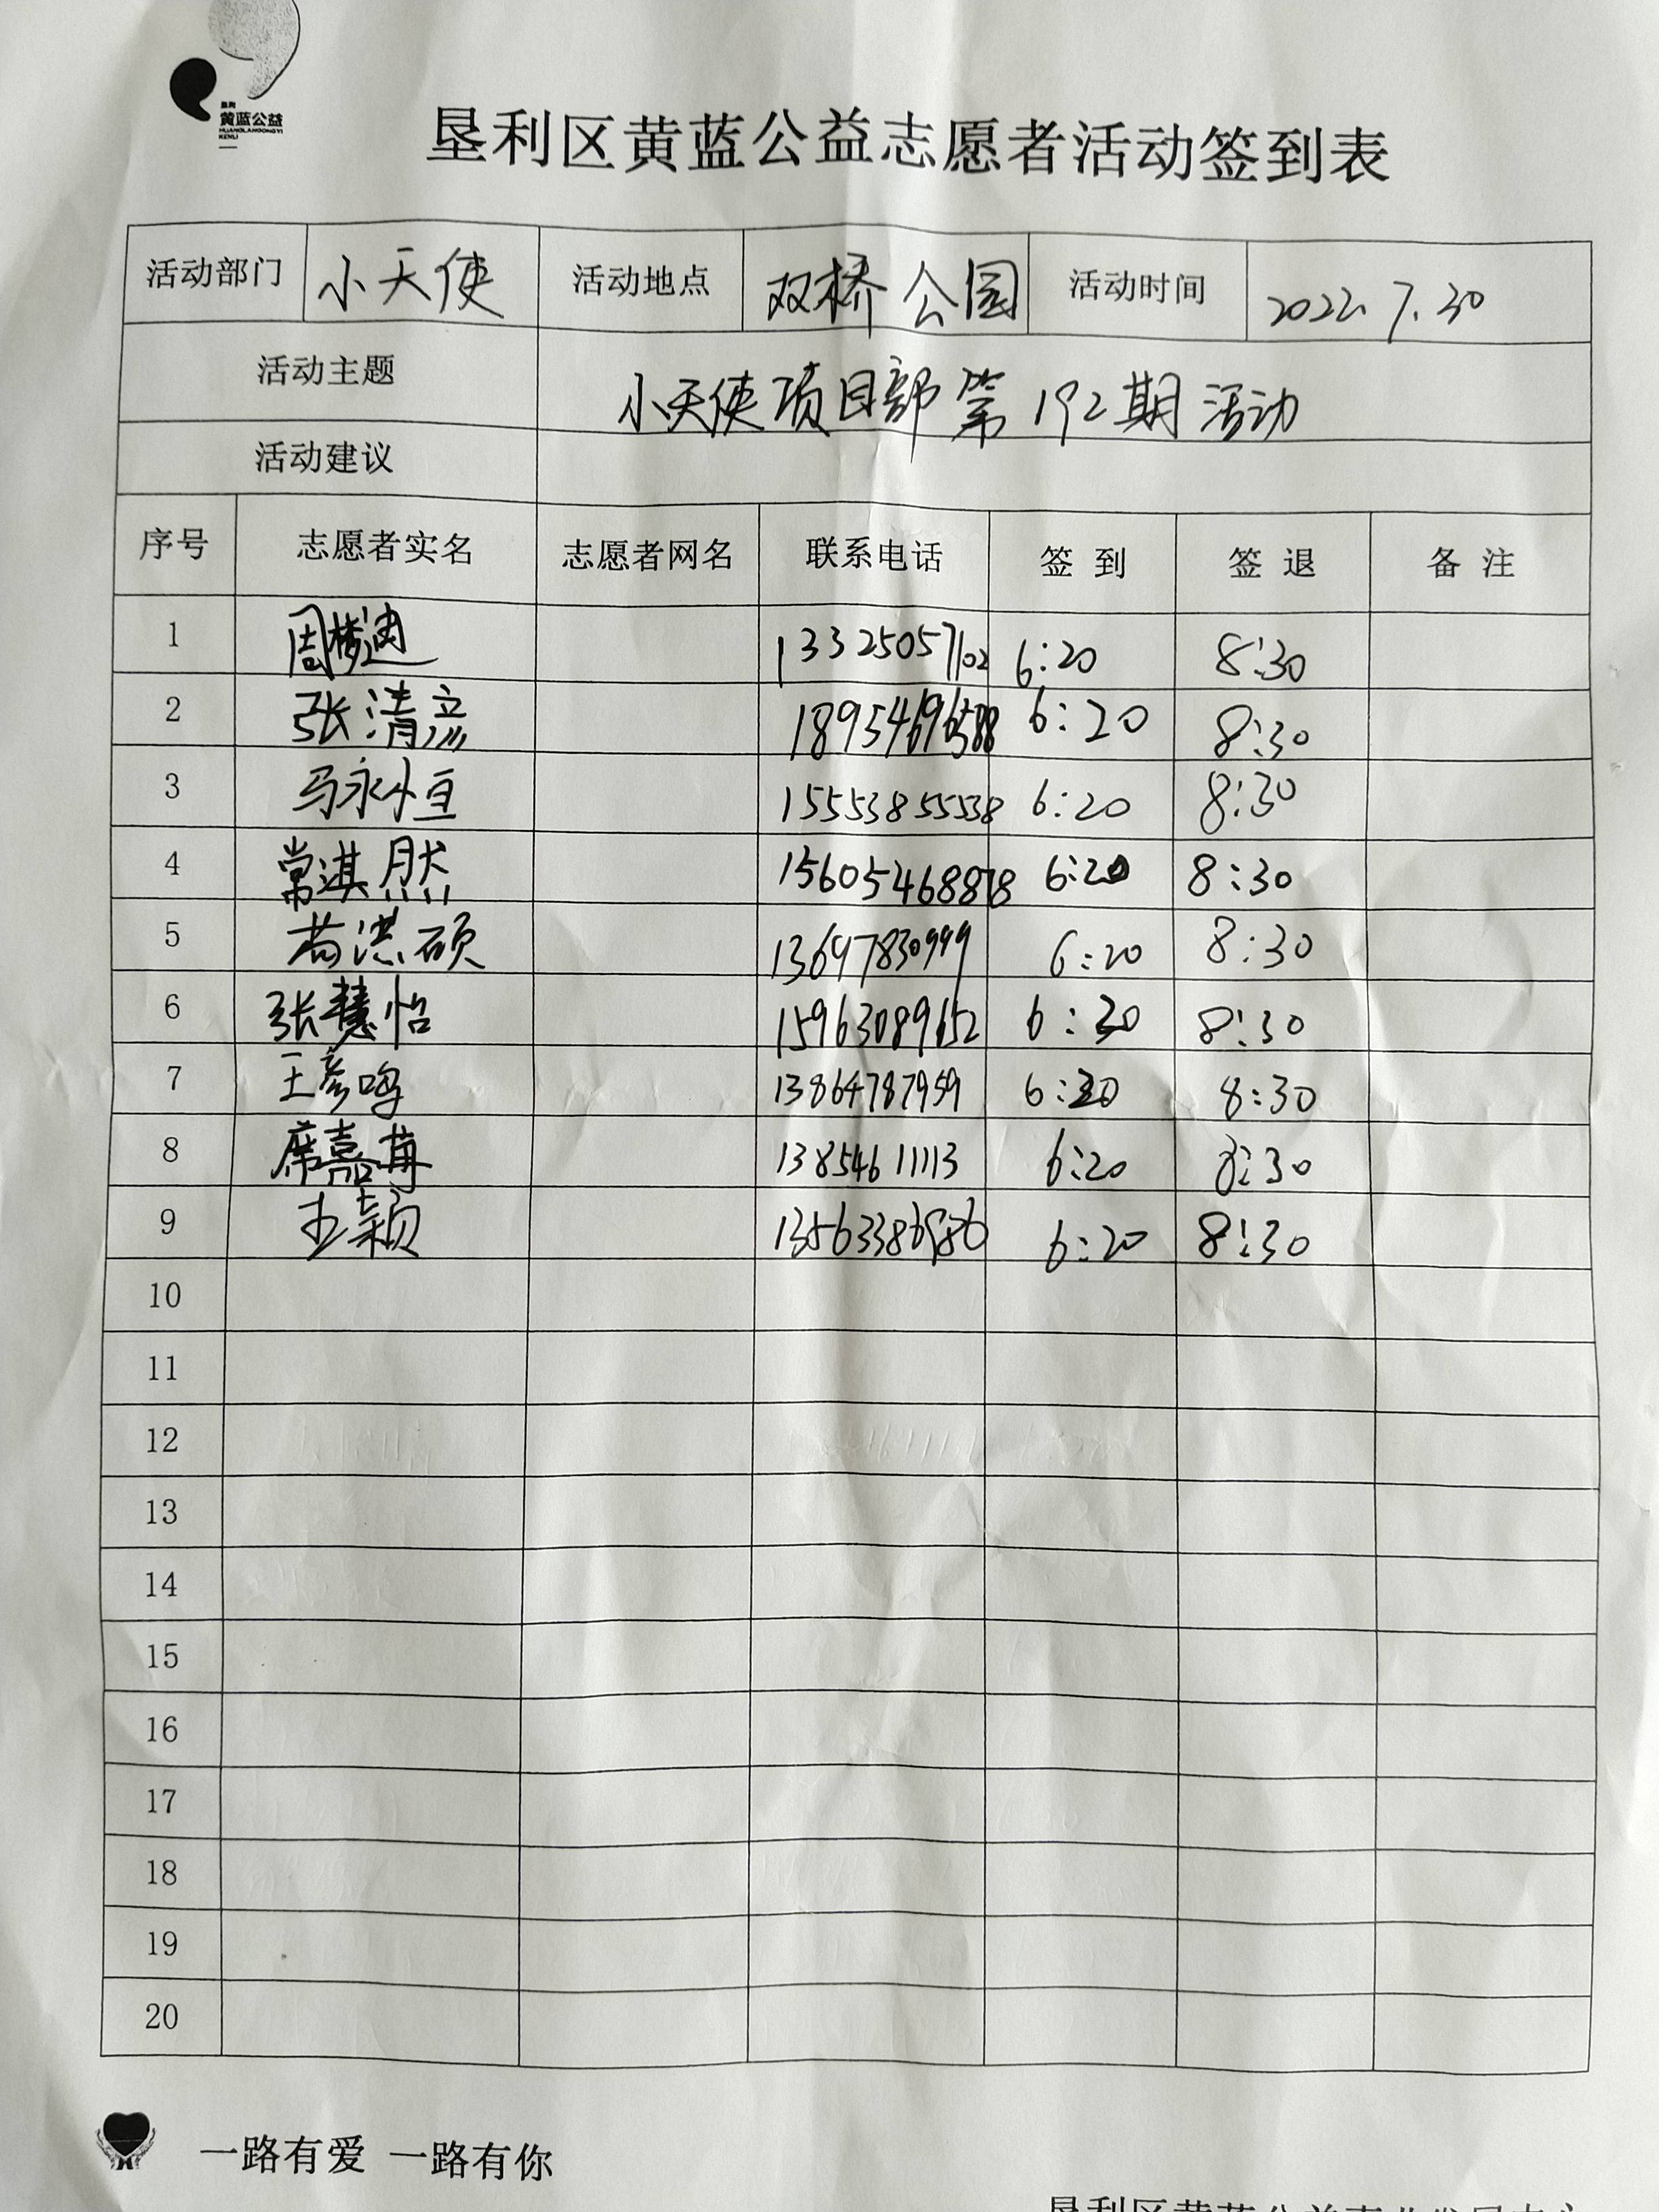 垦利
黄蓝公益
HUANGLANGONGYI
KENLI
垦利区黄蓝公益志愿者活动签到表
活动部门 小天使 活动地点 双桥公园 活动时间 2022.7.30
活动主题 小天使项目部第192期活动
活动建议
序号 志愿者实名 志愿者网名 联系电话 签到 签退 备注
1 周梦迪 13325057102 6:20 8:30
2 张清彦 6:20 8:30
3 马永恒 15553855538 6:20 8:30
4 常淇然 15605468878 6:20 8:30
5 苟洪硕 13697830999 6:20 8:30
6 张慧怡 15963089652 6:30 8:30
7 王彦鸣 13864787959 6:20 8:30
8 席嘉苒 13854611113 6:20 8:30
9 王颖 6:20 8:30
10
11
12
13
14
15
16
17
18
19
20
一路有爱 一路有你